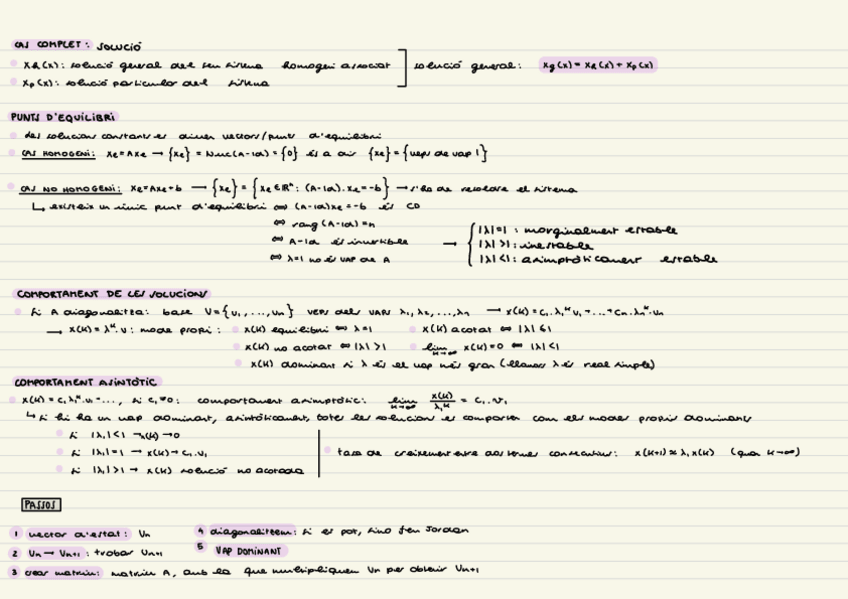 CAS COMPLET: SOLUCIÓ
xh(x): solució general del seu sistema homogeni associat
xp(x): solució particular del sistema
solució general: xg(x) = xh(x) + xp(x)
PUNTS D'EQUILIBRI
les solucions constants es diuen vectors/punts d'equilibri
CAS HOMOGENI: xe=Axe → {xe} = Nuc(A-Id) = {0} és a dir {xe} = {veps de vap 1}
CAS NO HOMOGENI: xe=Axe+b → {xe} = {xe ∈ ℝⁿ: (A-Id)·xe=-b} → s'ha de resoldre el sistema
↳ existeix un únic punt d'equilibri ⇔ (A-Id)xe=-b és CD
⇔ rang (A-Id)=n
⇔ A-Id és invertible
⇔ λ=1 no és VAP de A
→ { |λ|=1 : marginalment estable
|λ|>1 : inestable
|λ|<1 : asimptòticament estable
COMPORTAMENT DE LES SOLUCIONS
Si A diagonalitza: base V={v₁,...,vn} VEPS dels VAPS λ₁,λ₂,...,λn → x(k)=c₁·λ₁ᵏ·v₁+...+cn·λnᵏ·vn
→ x(k)=λᵏ·v: mode propi: x(k) equilibri ⇔ λ=1 x(k) acotat ⇔ |λ|≤1
x(k) no acotat ⇔ |λ|>1 lim k→∞ x(k)=0 ⇔ |λ|<1
x(k) dominant si λ és el vap més gran (llavors λ és real simple)
COMPORTAMENT ASINTÒTIC
x(k)=c₁λ₁ᵏ·v₁+..., si c₁≠0: comportament asimptòtic: lim k→∞ x(k)/λ₁ᵏ = c₁·v₁
↳ Si hi ha un vap dominant, asintòticament, totes les solucions es comporten com els modes propis dominants
Si |λ₁|<1 → x(k)→0
Si |λ₁|=1 → x(k)→c₁·v₁
Si |λ₁|>1 → x(k) solució no acotada
taxa de creixement entre dos termes consecutius: x(k+1)≈λ₁x(k) (quan k→∞)
PASSOS
1 vector d'estat: Vn
2 Vn→Vn+1: trobar Vn+1
3 crear matriu: matriu A, amb la que multipliquem Vn per obtenir Vn+1
4 diagonalitzem: si es pot, sino fem Jordan
5 VAP DOMINANT